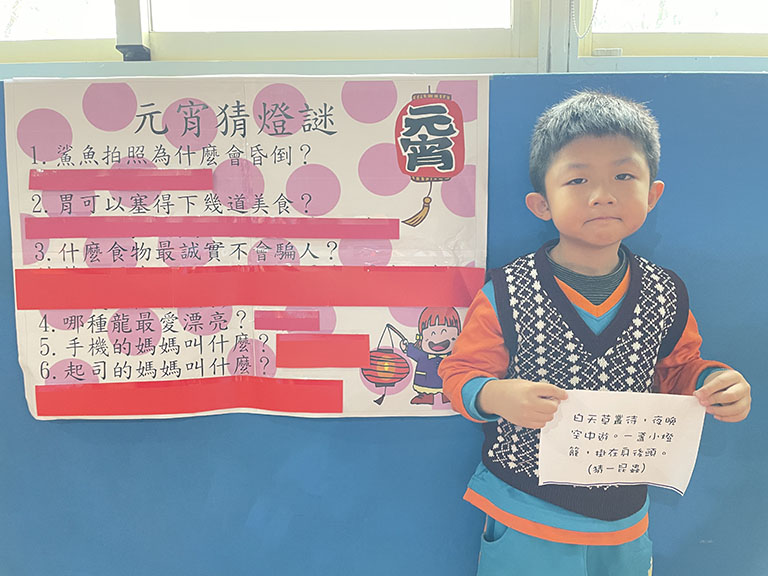 元宵猜燈謎
元宵
1. 鯊魚拍照為什麼會昏倒？
2. 胃可以塞得下幾道美食？
3. 什麼食物最誠實不會騙人？
4. 哪種龍最愛漂亮？
5. 手機的媽媽叫什麼？
6. 起司的媽媽叫什麼？
白天草叢待，夜晚
空中遊。一盞小燈
籠，掛在身後頭。
(猜一昆蟲)